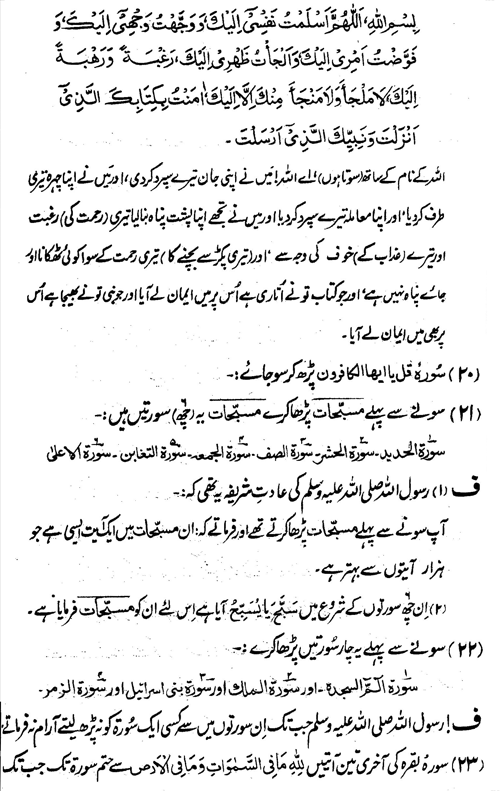 بِسْمِ اللهِ، اَللّٰهُمَّ اَسْلَمْتُ نَفْسِیْ اِلَیْكَ وَ وَجَّهْتُ وَجْهِیْ اِلَیْكَ، وَ
فَوَّضْتُ اَمْرِیْ اِلَیْكَ وَ اَلْجَأْتُ ظَهْرِیْ اِلَیْكَ، رَغْبَةً وَّ رَهْبَةً
اِلَیْكَ لَا مَلْجَأَ وَلَا مَنْجَأَ مِنْكَ اِلَّا اِلَیْكَ، اٰمَنْتُ بِكِتَابِكَ الَّذِیْ
اَنْزَلْتَ وَ نَبِیِّكَ الَّذِیْ اَرْسَلْتَ ۔
اللہ کے نام کے ساتھ (سوتا ہوں) اے اللہ! میں نے اپنی جان تیرے سپرد کردی، اور میں نے اپنا چہرہ تیری
طرف کردیا، اور اپنا معاملہ تیرے سپرد کردیا اور میں نے تجھے اپنا پشت پناہ بنالیا تیری (رحمت کی) رغبت
اور تیرے (عذاب کے) خوف کی وجہ سے، اور (تیری پکڑ سے بچنے کا) تیری رحمت کے سوا کوئی ٹھکانا اور
جائے پناہ نہیں ہے، اور جو کتاب تو نے اُتاری ہے اُس پر میں ایمان لے آیا اور جو نبی تو نے بھیجا ہے اُس
پر بھی میں ایمان لے آیا۔
(۲۰) سُورہ قل یا ایھا الکافرون پڑھ کر سو جائے :-
(۲۱) سونے سے پہلے مسبّحات پڑھا کرے مسبّحات یہ (چھ) سورتیں ہیں :-
سورۃ الحدید - سورۃ الحشر - سورۃ الصف - سورۃ الجمعہ - سورۃ التغابن - سورۃ الاعلیٰ
ف (۱) رسول اللہ صلی اللہ علیہ وسلم کی عادتِ شریفہ یہ تھی کہ :-
آپ سونے سے پہلے مسبّحات پڑھا کرتے تھے اور فرماتے کہ: ان مسبّحات میں ایک آیت ایسی ہے جو
ہزار آیتوں سے بہتر ہے۔
(۲) اِن چھ سورتوں کے شروع میں سَبَّحَ یا یُسَبِّحُ آیا ہے اِس لئے ان کو مسبّحات فرمایا ہے۔
(۲۲) سونے سے پہلے یہ چار سُورتیں پڑھا کرے :-
سورۃ الٓمّٓ السجدہ - اور سورۃ الملک اور سورۃ بنی اسرائیل اور سورۃ الزمر -
ف! رسول اللہ صلی اللہ علیہ وسلم جب تک اِن سورتوں میں سے کسی ایک سورۃ کو نہ پڑھ لیتے آرام نہ فرماتے
(۲۳) سورہ بقرہ کی آخری تین آیتیں لِلّٰهِ مَا فِی السَّمٰوٰتِ وَمَا فِی الْاَرْضِ سے ختم سورۃ تک جب تک